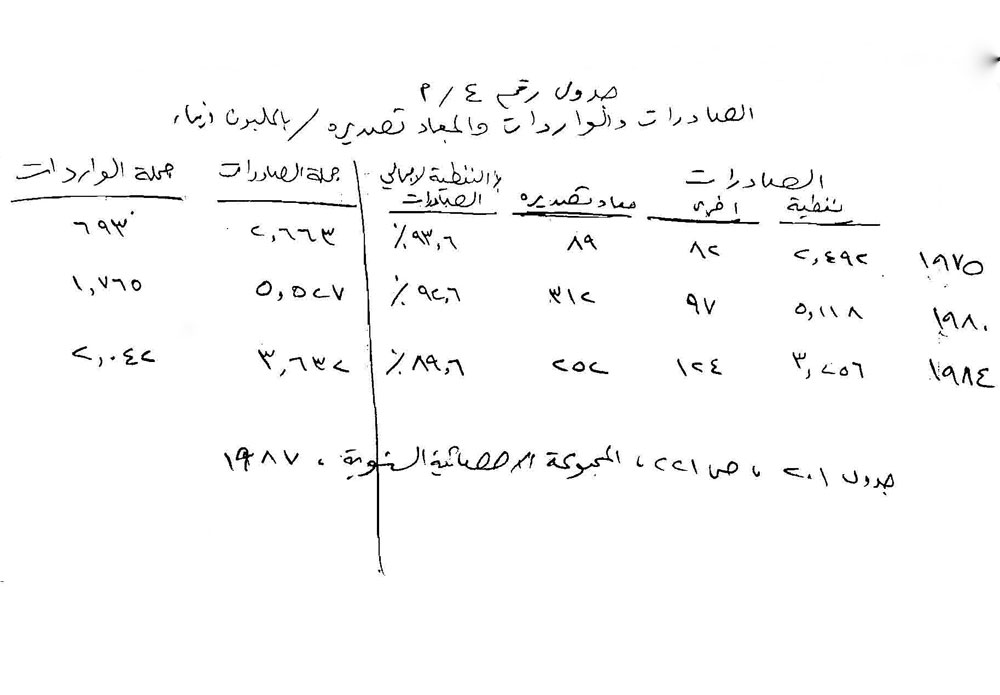 جدول رقم ٤ / م
الصادرات والواردات والمعاد تصديره / بالمليون دينار
الصادرات
نفطية اخرى معاد تصديره ٪ النفطية لاجمالي الصادرات جملة الصادرات جملة الواردات
١٩٧٥ ٢,٤٩٢ ٨٢ ٨٩ ٩٣,٦٪ ٢,٦٦٣ ٦٩٣
١٩٨٠ ٥,١١٨ ٩٧ ٣١٢ ٩٢,٦٪ ٥,٥٢٧ ١,٧٦٥
١٩٨٤ ٣,٢٥٦ ١٢٤ ٢٥٢ ٨٩,٦٪ ٣,٦٣٢ ٢,٠٤٢
جدول ٢٠١ ، ص ٢٢١ ، المجموعة الاحصائية السنوية ، ١٩٨٧